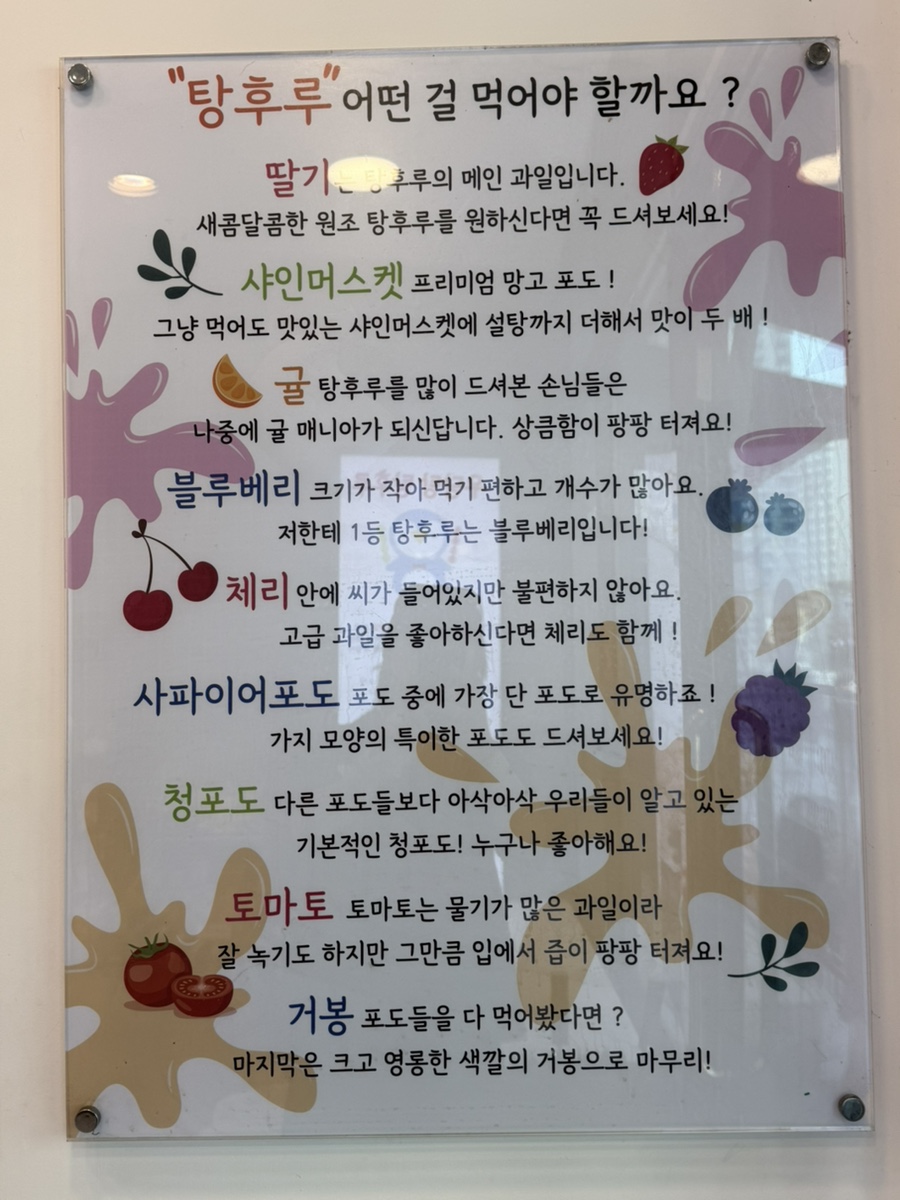 "탕후루" 어떤 걸 먹어야 할까요 ?
딸기는 탕후루의 메인 과일입니다.
새콤달콤한 원조 탕후루를 원하신다면 꼭 드셔보세요!
샤인머스켓 프리미엄 망고 포도 !
그냥 먹어도 맛있는 샤인머스켓에 설탕까지 더해서 맛이 두 배 !
귤 탕후루를 많이 드셔본 손님들은
나중에 귤 매니아가 되신답니다. 상큼함이 팡팡 터져요!
블루베리 크기가 작아 먹기 편하고 개수가 많아요.
저한테 1등 탕후루는 블루베리입니다!
체리 안에 씨가 들어있지만 불편하지 않아요.
고급 과일을 좋아하신다면 체리도 함께 !
사파이어포도 포도 중에 가장 단 포도로 유명하죠 !
가지 모양의 특이한 포도도 드셔보세요!
청포도 다른 포도들보다 아삭아삭 우리들이 알고 있는
기본적인 청포도! 누구나 좋아해요!
토마토 토마토는 물기가 많은 과일이라
잘 녹기도 하지만 그만큼 입에서 즙이 팡팡 터져요!
거봉 포도들을 다 먹어봤다면 ?
마지막은 크고 영롱한 색깔의 거봉으로 마무리!